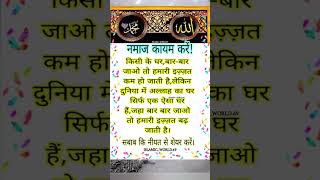 محمد
الله
नमाज कायम करें!
किसी के घर,बार-बार
जाओ तो हमारी इज़्ज़त
कम हो जाती है,लेकिन
दुनिया में अल्लाह का घर
सिर्फ एक ऐसा घर
हैं,जहा बार बार जाओ
तो हमारी इज्जत बढ़
जाती है।
सबाब कि नीयत से शेयर करें।
ISLAMIC_WORLD.69